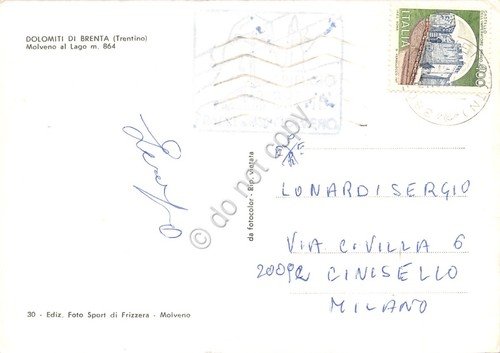 DOLOMITI DI BRENTA (Trentino)
Molveno al Lago m. 864
ITALIA
do not copy
da fotocolor - Rip. vietata
LONARDI SERGIO
VIA C. VILLA 6
20092 CINISELLO
MILANO
30 - Ediz. Foto Sport di Frizzera - Molveno